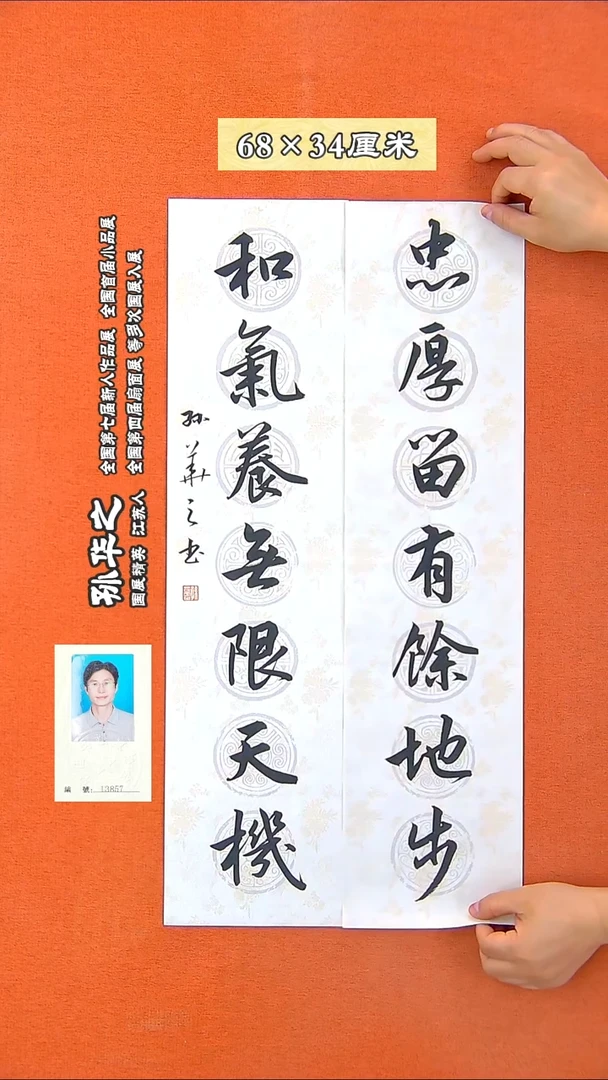 68×34厘米
忠厚留有餘地步
和氣養無限天機
孙華之书
孙华之
国展精英 江苏人
全國第七届新人作品展 全國首届小品展
全國第四届扇面展等多次国展入展
編 號：13857